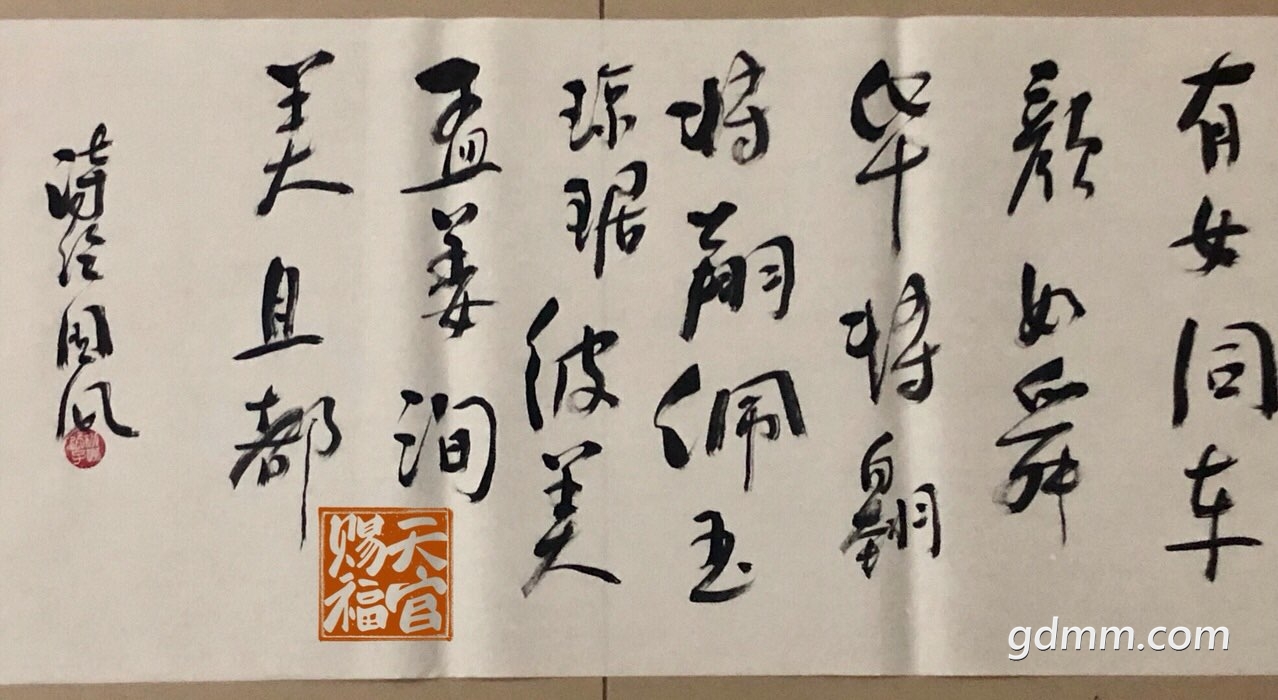 有女同车
颜如舜
华将翱
将翔佩玉
琼琚彼美
孟姜洵
美且都
诗经国风
天官
赐福
gdmm.com